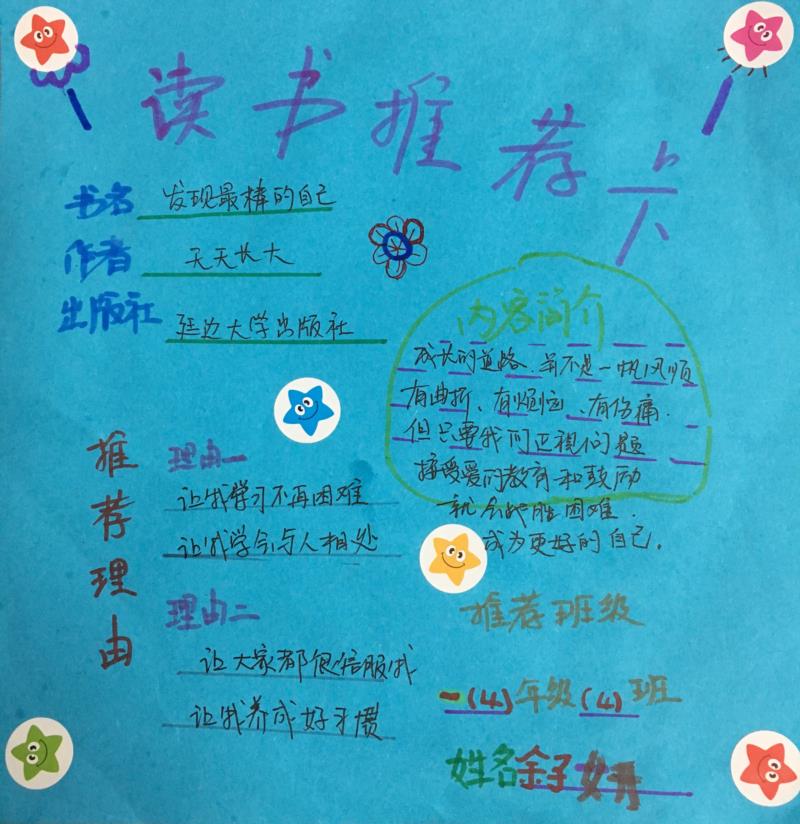 读书推荐卡
书名 发现最棒的自己
作者 天天长大
出版社 延边大学出版社
内容简介
成长的道路、并不是一帆风顺
有曲折、有烦恼、有伤痛.
但只要我们正视问题
接受爱的教育和鼓励
就会战胜困难.
成为更好的自己.
推荐理由
理由一
让我学习不再困难
让我学会与人相处
理由二
让大家都很信服我
让我养成好习惯
推荐班级
一(4)年级(4)班
姓名